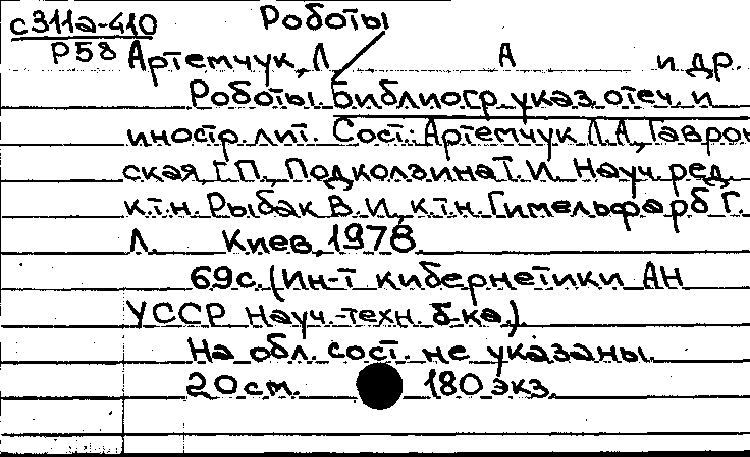 с311а-410 Роботы
Р58 Артемчук, Л А и др.
Роботы. Библиогр. указ. отеч. и
иностр. лит. Сост.: Артемчук Л.А., Гаврон-
ская, Г.П., Подколзина Т.И. Науч. ред.
к.т.н. Рыбак В.И., к.т.н. Гимельфарб Г.
Л. Киев, 1978.
69с. (Ин-т кибернетики АН
УССР Науч.-техн. б-ка.)
На обл. сост. не указаны.
20 см. 180 экз.